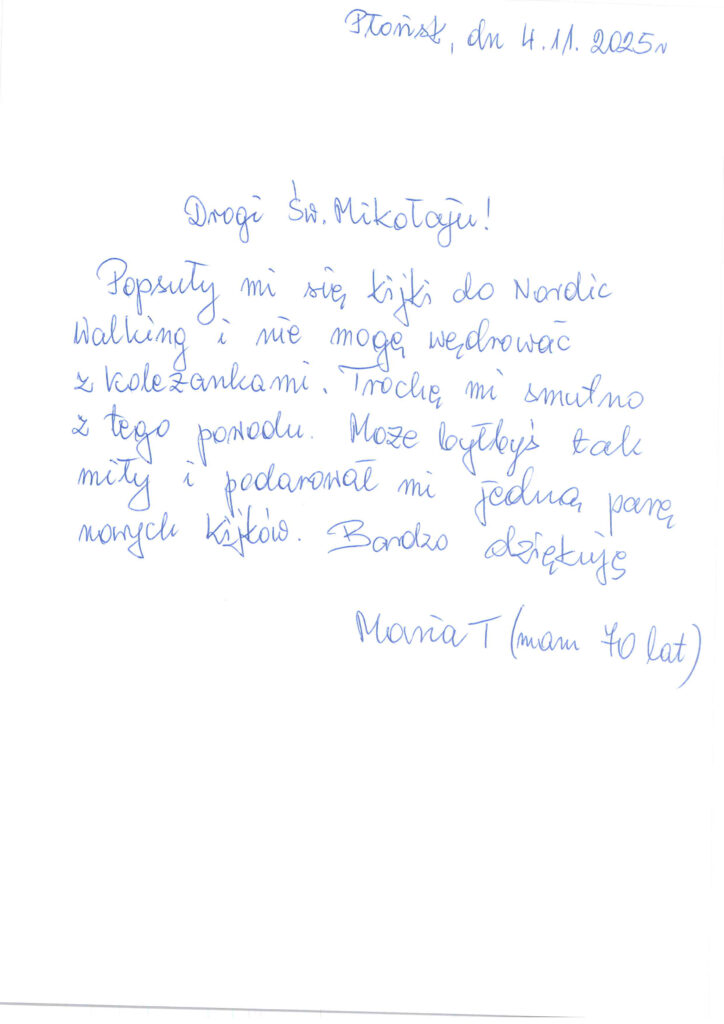 Płońsk, dn 4.11.2025r
Drogi Św. Mikołaju!
Popsuły mi się kijki do Nordic
Walking i nie mogę wędrować
z koleżankami. Trochę mi smutno
z tego powodu. Może byłbyś tak
miły i podarował mi jedną parę
nowych kijków. Bardzo dziękuję
Maria T (mam 70 lat)